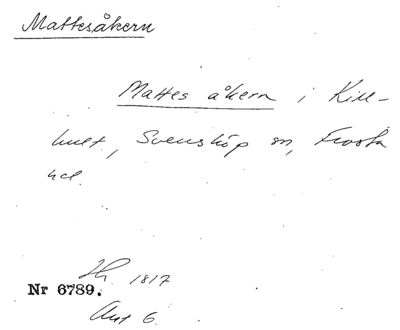 Mattesåkern
Mattes åkern i Kill-
hult, Svensköp sn, Frosta
hd.
Lh. 1817
Nr 6789.
Akt 6